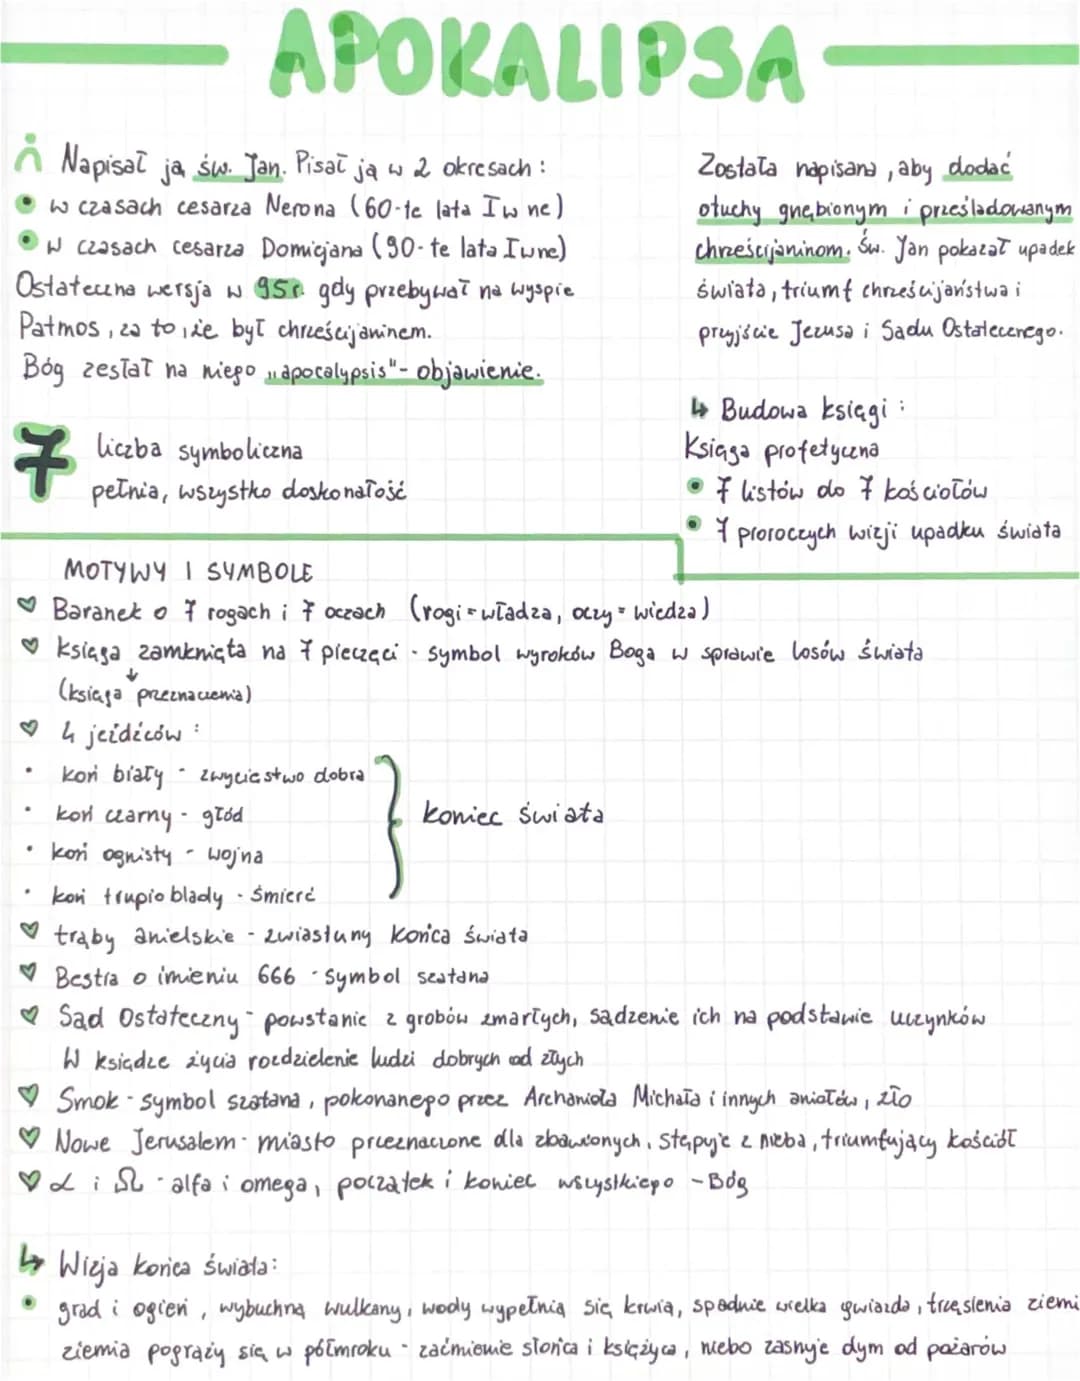 APOKALIPSA
Napisał ją św. Jan. Pisał ją w 2 okresach:
w czasach cesarza Nerona (60-te lata I w ne)
w czasach cesarza Domicjana (90-te lata I wne)
Ostateczna wersja w 95r. gdy przebywał na wyspie
Patmos, za to, że był chrześcijaninem.
Bóg zesłał na niego "apocalypsis" - objawienie.
7 liczba symboliczna
pełnia, wszystko doskonałość
Została napisana, aby dodać
otuchy gnębionym i prześladowanym
chrześcijaninom. Św. Jan pokazał upadek
świata, triumf chrześcijaństwa i
przyjście Jezusa i Sądu Ostatecznego.
↳ Budowa księgi:
Księga profetyczna
7 listów do 7 kościołów
7 proroczych wizji upadku świata
MOTYWY I SYMBOLE
Baranek o 7 rogach i 7 oczach (rogi = władza, oczy = wiedza)
księga zamknięta na 7 pieczęci - symbol wyroków Boga w sprawie losów świata
(księga przeznaczenia)
4 jeźdźców:
koń biały - zwycięstwo dobra
koń czarny - głód
koń ognisty - wojna
koń trupio blady - śmierć
koniec świata
trąby anielskie - zwiastuny końca świata
Bestia o imieniu 666 - symbol szatana
Sąd Ostateczny - powstanie z grobów zmarłych, sądzenie ich na podstawie uczynków
W księdze życia rozdzielenie ludzi dobrych od złych
Smok - symbol szatana, pokonanego przez Archanioła Michała i innych aniołów, zło
Nowe Jerusalem - miasto przeznaczone dla zbawionych. Stępuje z nieba, triumfujący kościół
α i Ω - alfa i omega, początek i koniec wszystkiego - Bóg
↳ Wizja końca świata:
grad i ogień, wybuchną wulkany, wody wypełnią się krwią, spadnie wielka gwiazda, trzęsienia ziemi
ziemia pogrąży się w półmroku - zaćmienie słońca i księżyca, niebo zasnuje dym od pożarów